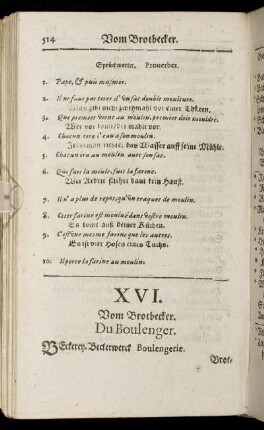 514 Vom Brotbecker.
Sprüchwörter. Proverbes.
1. Pape, & puis musnier.
2. Il ne faut pas tirer d'un sac double moulture.
Man gibt nicht zweymahl vor einer Thüren.
3. Que premier vient au moulin, premier doit mouldre.
Wer vor kombt der mahlt vor.
4. Chacun tire l'eau à son moulin.
Jederman richtet das Wasser auff seine Mühle.
5. Chacun ira au moulin avec son sac.
6. Qui fuit la meule, fuit la farine.
Wer Arbeit fliehet baut kein Hanff.
7. Il n'a plus de repos, qu'un traquet de moulin.
8. Cette farine est moulue dans vostre moulin.
Es kombt auß deiner Küchen.
9. C'est une mesme farine que les autres.
Es ist vier Hosen eines Tuchs.
10. Il porte la farine au moulin.
XVI.
Vom Brotbecker.
Du Boulenger.
BEckerey, Beckerwerck Boulengerie.
Brot-